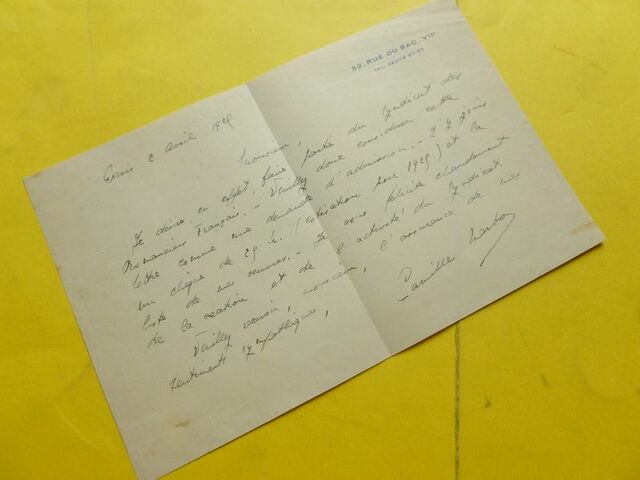 52, RUE DU BAC. VIIᵉ
Paris 2 avril 1929
Monsieur,
Je désire, en effet, faire partie du Syndicat des
Romanciers Français. - Veuillez donc considérer cette
lettre comme une demande d'admission. - J'y joins
un chèque de 25 fr. (cotisation pour 1929) et la
liste de mes œuvres. - Je vous félicite chaudement
de la création et de l'activité du Syndicat
Veuillez trouver, monsieur, l'assurance de mes
sentiments sympathiques,
Camille Marbo